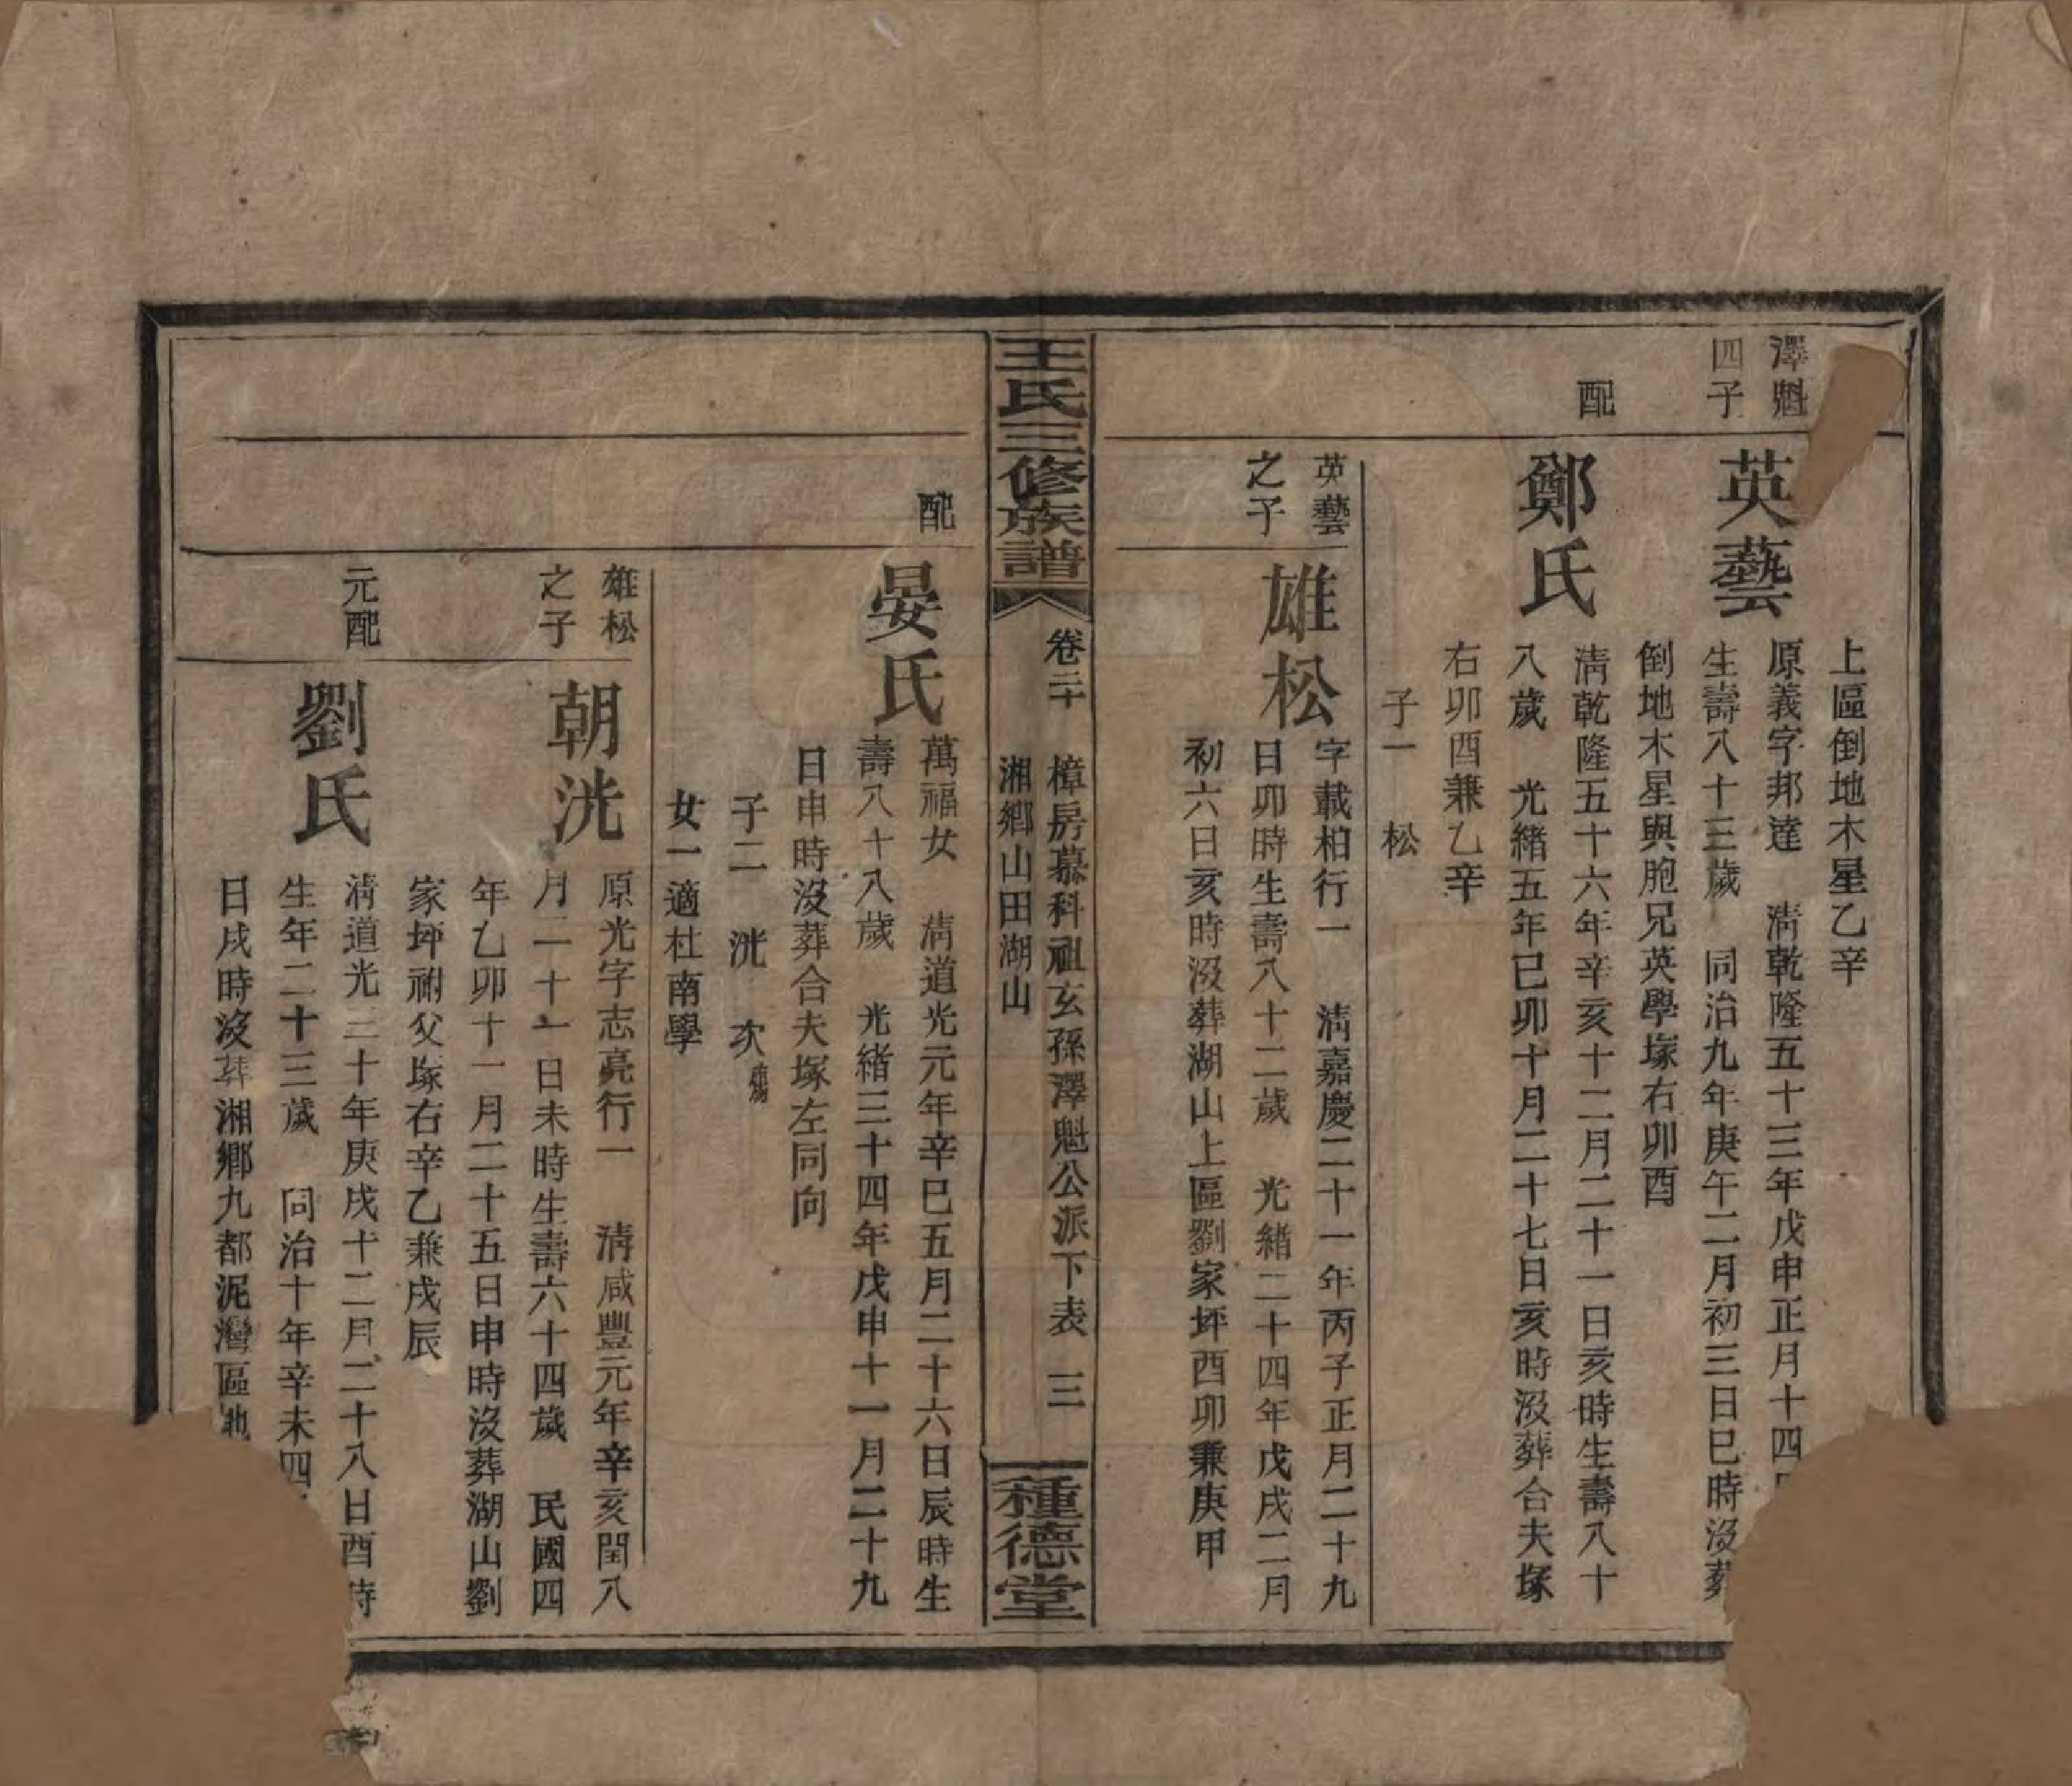 上區倒地木星乙辛
澤魁
四子
英藝
原義字邦達　淸乾隆五十三年戊申正月十四
生壽八十三歲　同治九年庚午二月初三日巳時沒葬
倒地木星與胞兄英學塚右卯酉
配
鄭氏
淸乾隆五十六年辛亥十二月二十一日亥時生壽八十
八歲　光緒五年己卯十月二十七日亥時沒葬合夫塚
右卯酉兼乙辛
子一　松
英藝
之子
雄松
字載柏行一　淸嘉慶二十一年丙子正月二十九
日卯時生壽八十二歲　光緒二十四年戊戌二月
初六日亥時沒葬湖山上區劉家坪酉卯兼庚甲
王氏三修族譜
卷二十
樟房慕科祖玄孫澤魁公派下表　三
湘鄉山田湖山
種德堂
配
晏氏
萬福女　淸道光元年辛巳五月二十六日辰時生
壽八十八歲　光緒三十四年戊申十一月二十九
日申時沒葬合夫塚左同向
子二　洸　次
女一適杜南學
雄松
之子
朝洸
原光字志亮行一　淸咸豐元年辛亥閏八
月二十一日未時生壽六十四歲　民國四
年乙卯十一月二十五日申時沒葬湖山劉
家坪祔父塚右辛乙兼戌辰
元配
劉氏
淸道光三十年庚戌十二月二十八日酉時
生年二十三歲　同治十年辛未四
日戌時沒葬湘鄉九都泥灣區地